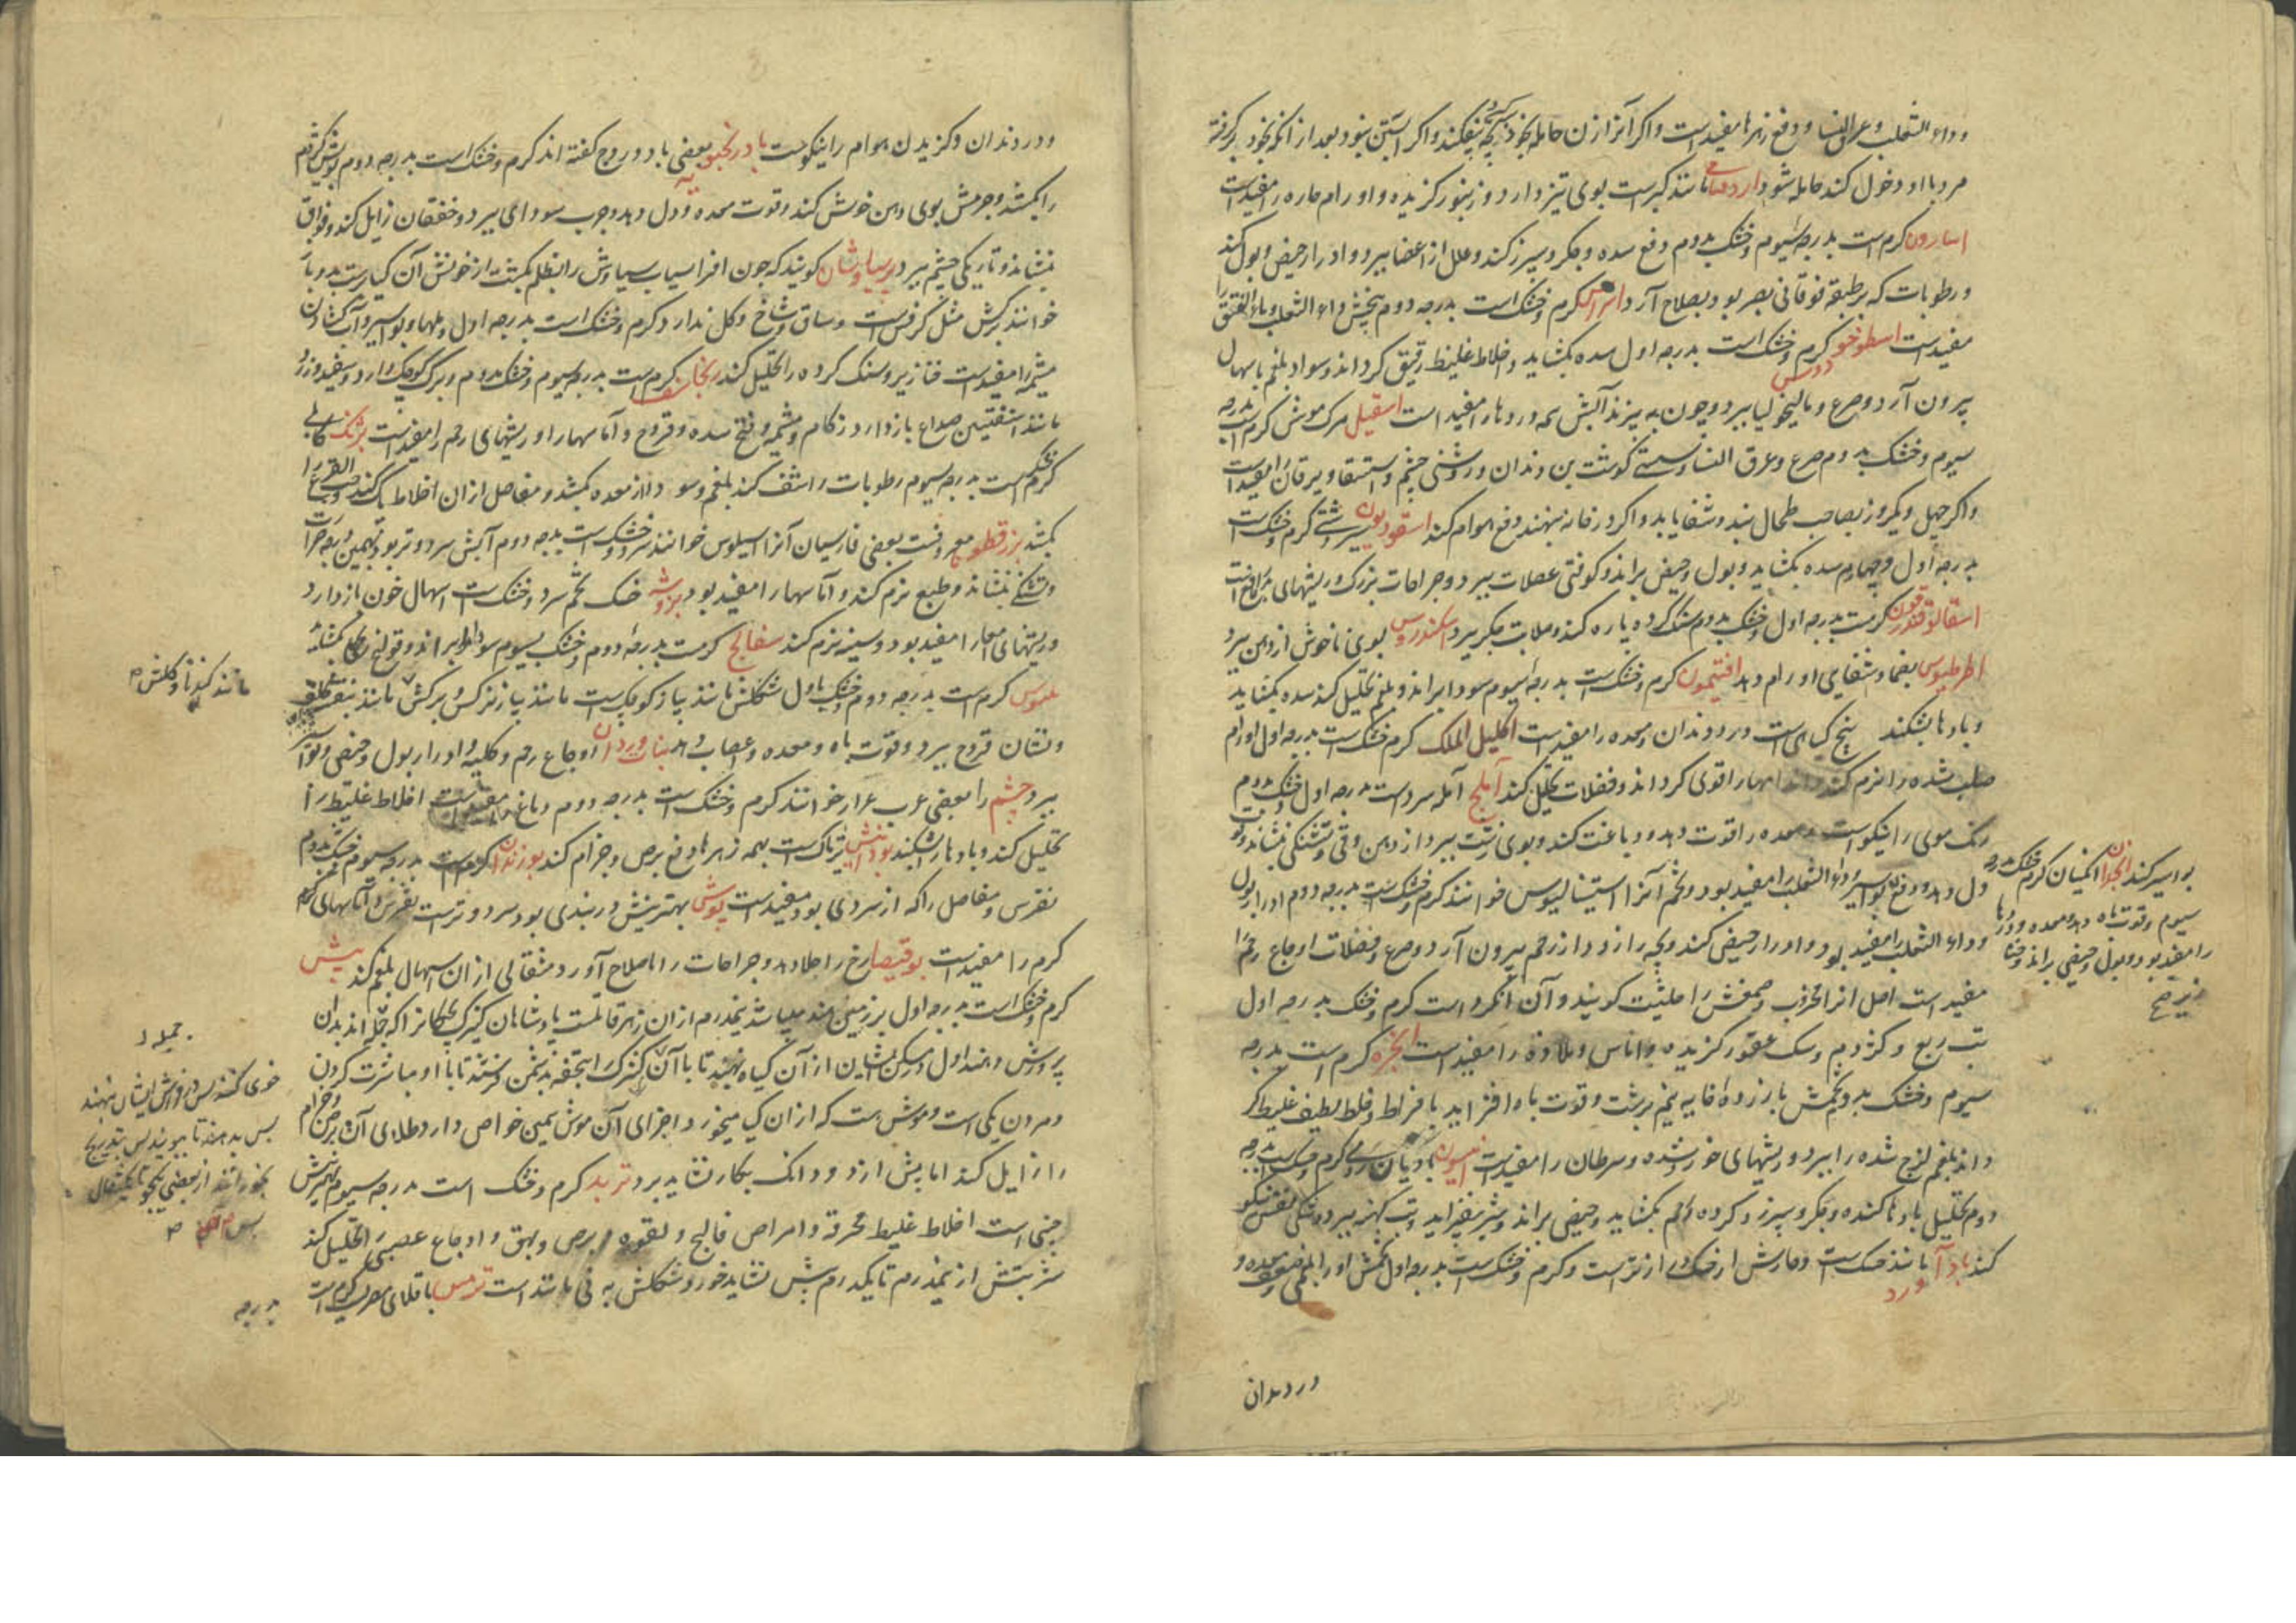 و داء الثعلب و عرق النسا و دفع زهرها مفیدست و اکر آنرا زن حامله بخود بر کیرد بچه بیفکند و اکر آبستن نبود بعد از آنکه بخود برکرفته
مرد با او دخول کند حامله شود مانند کبرست بوی تیز دارد و زنبور کزیده و اورام حاره را مفیدست
اسارون کرم است بدرجه سیوم و خشک بدوم دفع سده و جکر و سپرز کند و علل از اعضا ببرد و ادرار حیض و بول کند
و رطوبات که بر طبقه فوقانی بصر بود بصلاح آرد اسراش کرم و خشک است بدرجه دوم بیخش داء الثعلب و باء الفتق را
مفیدست اسطوخودوس کرم و خشک است بدرجه اول سده بکشاید و اخلاط غلیظ رقیق کرداند و سودا و بلغم باسهال
بیرون آرد و صرع و مالیخولیا ببرد و چون بپزند آبش همه دردها را مفید است اسقیل مرک موش کرم است بدرجه
سیوم و خشک بدوم صرع و عرق النسا و سستی کوشت بن دندان و روشنی چشم و استسقا و یرقان را مفیدست
و اکر چهل و یکروز بصاحب طحال بندند شفا یابد و اکر در خانه بنهند دفع هوام کند اسقوردیون سیر دشتی کرم و خشک است
بدرجه اول و چهارم سده بکشاید و بول و حیض براند و کوفتی عضلات ببرد و جراحات بزرک و ریشهای را نافعست
اسقالوقندریون کرمست بدرجه اول و خشک بدوم سنک کرده پاره کند و صلابت جکر ببرد اسکندروس بوی ناخوش از دهن ببرد
اطرطیوس بضماد شفای اورام دهد افتیمون کرم و خشک است بدرجه سیوم سودا براند و بلغم تحلیل کند سده بکشاید
و بادها بشکند بیخ کیاهی است درد دندان و معده را مفیدست اکلیل الملک کرم و خشک است بدرجه اول اورام
صلب شده را نرم کند و اندامها را قوی کرداند و فضلات تحلیل کند آملج آمله سردست بدرجه اول خشک بدوم
رنک موی را نیکوست و معده را قوت دهد و دباغت کند و بوی زشت ببرد از دهن و قی و تشنکی بنشاند و قوت
دل دهد و رفع بواسیر و داء الثعلب را مفید بود و تخم آنرا استیسالیوس خوانند کرم و خشک است بدرجه دوم ادرار بول
و داء الثعلب را مفید بود و ادرار حیض کند و بچه را زود از رحم بیرون آرد و صرع و فضلات اوجاع رحم را
مفید است اصل انرا محروث و صمغش را حلتیت کویند و آن انکزد است کرم و خشک بدرجه اول
تب ربع و کژدم و سک عقور کزیده و اناس و ملاذه را مفیدست انجره کرم است بدرجه
سیوم و خشک بدوم تخمش با زرده خایه نیم برشت و قوت باه افزاید بافراط و خلط لطیف غلیظ کر
داند بلغم لزج شده را ببرد و ریشهای خورنده و سرطان را مفیدست انیسون بادیان رومی کرم و خشک است بدرجه
دوم تحلیل بادها کننده و جکر و سپرز و کرده و رحم بکشاید و حیض براند و شیر بیفزاید و تب کهنه ببرد و تنکی نفس نیکو
کند باد آورد مانند حسک است و خارش از خسک دراز ترست و کرم و خشک است بدرجه اول تخمش اورام بلغمی و ضعف معده و
درد دندان
بواسیر کند انجدان انکیان کرم و خشک بدرجه
سیوم و قوت باه دهد و معده و دردها
را مفید بود و بول و حیض براند و خنا
زیر صح
و درد دندان و کزیدن هوام را نیکوست بادرنجبویه بعضی بادروج کفته اند کرم و خشک است بدرجه دوم بویش کژدم
را بکشد و جرمش بوی دهن خوش کند و قوت معده و دل دهد و جرب سوداوی ببرد و خفقان زایل کند و فواق
بنشاند و تاریکی چشم ببرد پرسیاوشان کویند که چون افراسیاب سیاوش را بظلم بکشت از خونش آن کیا رست بدو باز
خوانند برکش مثل کرفس است و ساق و شاخ و کل ندارد کرم و خشک است بدرجه اول و ملها و بواسیر و آب کشادن
مشیمه را مفیدست خنازیر و سنک کرده را تحلیل کند برنجاسف کرم است بدرجه سیوم و خشک بدوم و برک کوچک دارد و سفید و زرد
مانند افسنتین صداع بازدارد زکام و مشیمه و فتح سده و قروح و آماسها را و ریشهای رحم را مفیدست برنک کابلی
کرم و خشک است بدرجه سیوم رطوبات را نشف کند بلغم و سودا از معده بکشد و مفاصل از آن اخلاط پاک کند و حب القرع را
بکشد بزرقطونا معروفست بعضی فارسیان آنرا اسیلوس خوانند سرد و خشک است بدرجه دوم آبش سرد و تر بود
و تشنکی بنشاند و طبع نرم کند و آماسها را مفید بود بزوشه خنک تخم سرد و خشک است اسهال خون بازدارد
و ریشهای امعا را مفید بود و سینه نرم کند بسفایج کرمست بدرجه دوم و خشک بسیوم سودا براند و قولنج بکشاید
بلبوس کرم است بدرجه دوم و خشک باول شکلش مانند پیاز کوچکست مانند پیاز نرکس و برکش مانند بنفشه
و نشان قروح ببرد و قوت باه و معده و اعصاب دهد بنات وردان اوجاع رحم و کلیه و ادرار بول و حیض
ببرد چشم را بعضی عرب عرار خوانند کرم و خشک است بدرجه دوم دماغ را مفیدست اخلاط غلیظ را
تحلیل کند و بادها را بشکند تریاکست بهمه زهرها و دفع برص و جذام کند بوزیدان کرم است بدرجه سیوم خشک بدوم
نقرس و مفاصل را که از سردی بود مفیدست بوش بهترینش دربندی بود سرد و ترست نقرس و آماسهای کرم
کرم را مفیدست بوقیصا رخ را جلا دهد و جراحات را باصلاح آورد مثقالی از آن اسهال بلغم کند بیش
کرم و خشک است بدرجه اول بر زمین هند میباشد نیمدرم از آن زهر قاتلست پادشاهان کنیزک بچکانرا
پرورش دهند اول و مسکن ایشان از آن کیاه نهند تا با آن کنیزک را بتحفه بدشمن فرستند تا با او مباشرت کردن
و مردن یکی است و موش است که از آن کیا میخورد اجزای آن موش همین خواص دارد طلای آن برص و جذام
را زایل کند اما پیش از دو دانک بکار نشاید برد تربد کرم و خشک است بدرجه سیوم بهترینش
چینی است اخلاط غلیظ محرقه و امراض فالج و لقوه و برص و بهق و اوجاع عصبی را تحلیل کند
شربتش از نیمدرم تا یکدرم بیش نشاید خورد شکلش به نی مانند است ترمس باقلای مصریست کرم است
بدرجه
مانند کندنا و کلش
جمله
خوی کنند پس در فرش ایشان نهند
پس بدهند تا ببویند پس بتدریج
بخورانند از بعضی یکجو تا یکمثقال
پس